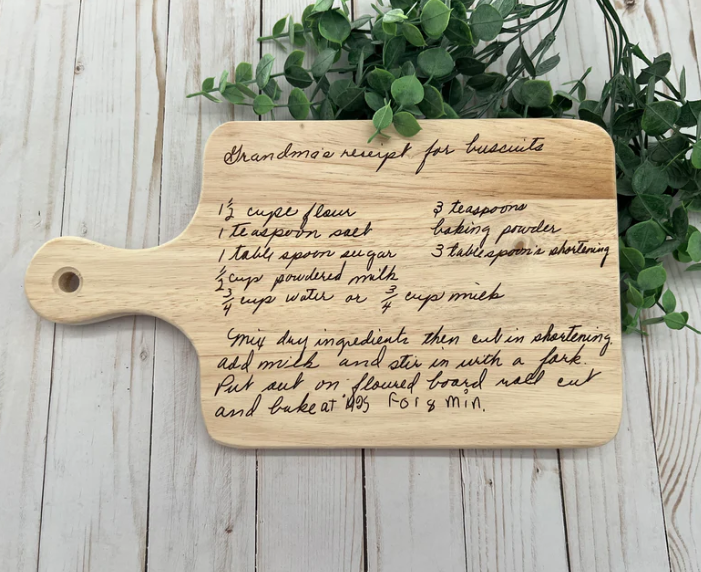 Grandma's receipt for buscuits
1 1/2 cups flour
1 teaspoon salt
1 table spoon sugar
1/2 cup powdered milk
3/4 cup water or 3/4 cup milk
3 teaspoons
baking powder
3 tablespoon's shortening
Mix dry ingredients then cut in shortening
add milk and stir in with a fork.
Put out on floured board roll cut
and bake at 425 For 8 min.